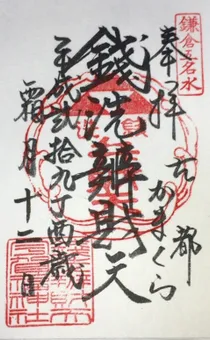 鎌倉五名水
奉拝
古都
かまくら
銭洗辨財天
平成弐拾九丁酉歳
霜月十二日